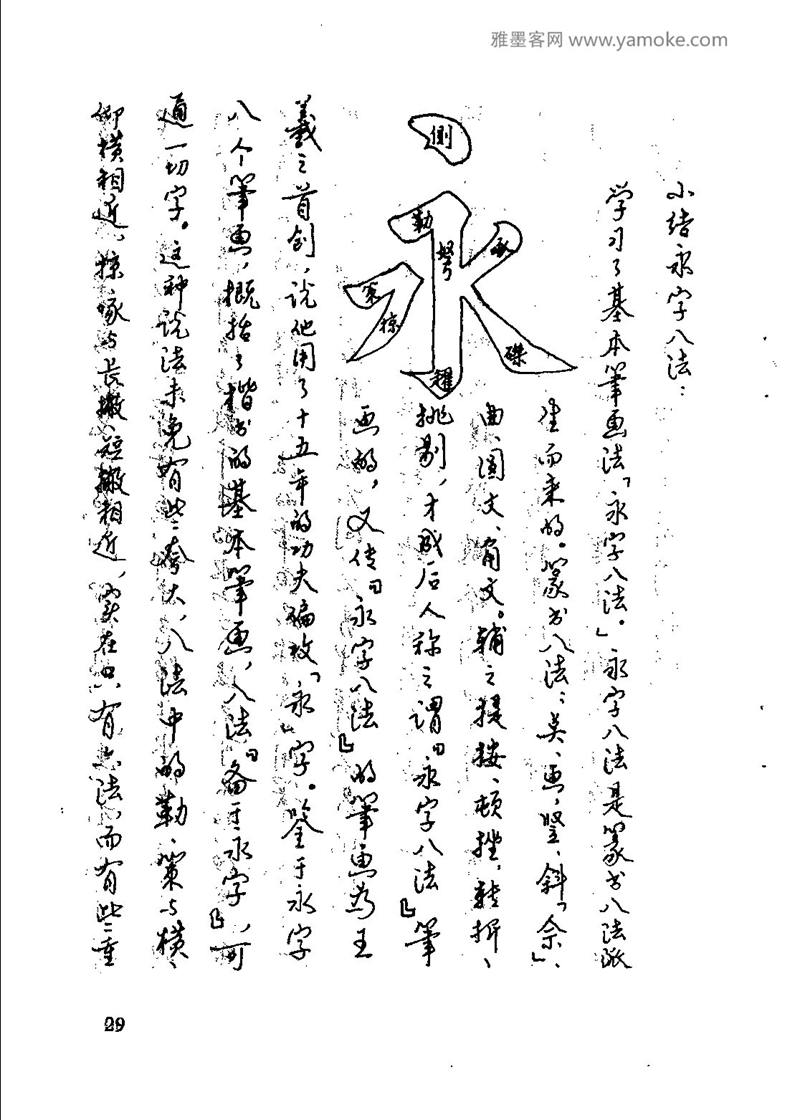 雅墨客网 www.yamoke.com
小结永字八法：
学习了基本筆画法「永字八法。」永字八法是篆书八法派
生而来的。篆书八法：矣、画，竖、斜「佘」、
曲、圆文、角文。輔之提按、顿挫，转折、
挑剔，才成后人称之谓「永字八法」筆
画的，又传「永字八法」的筆画为王
羲之首创，说他用了十五年的功夫偏攻「永」字。鉴于永字
八个筆画，概括了楷书的基本筆画，八法「备于永字」，可
通一切字。这种说法未免有些夸大，八法中的勒、策与横、
仰横相近、掠、啄与长撇、短撇相近，实在只有六法，而有些重
側
勒
努
啄
策
掠
磔
趯
29